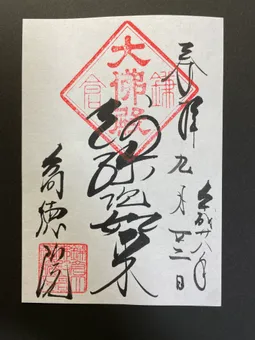 奉拝 九月廿二日
平成廿八年
大佛殿
鎌倉
阿弥陀如来
高徳院